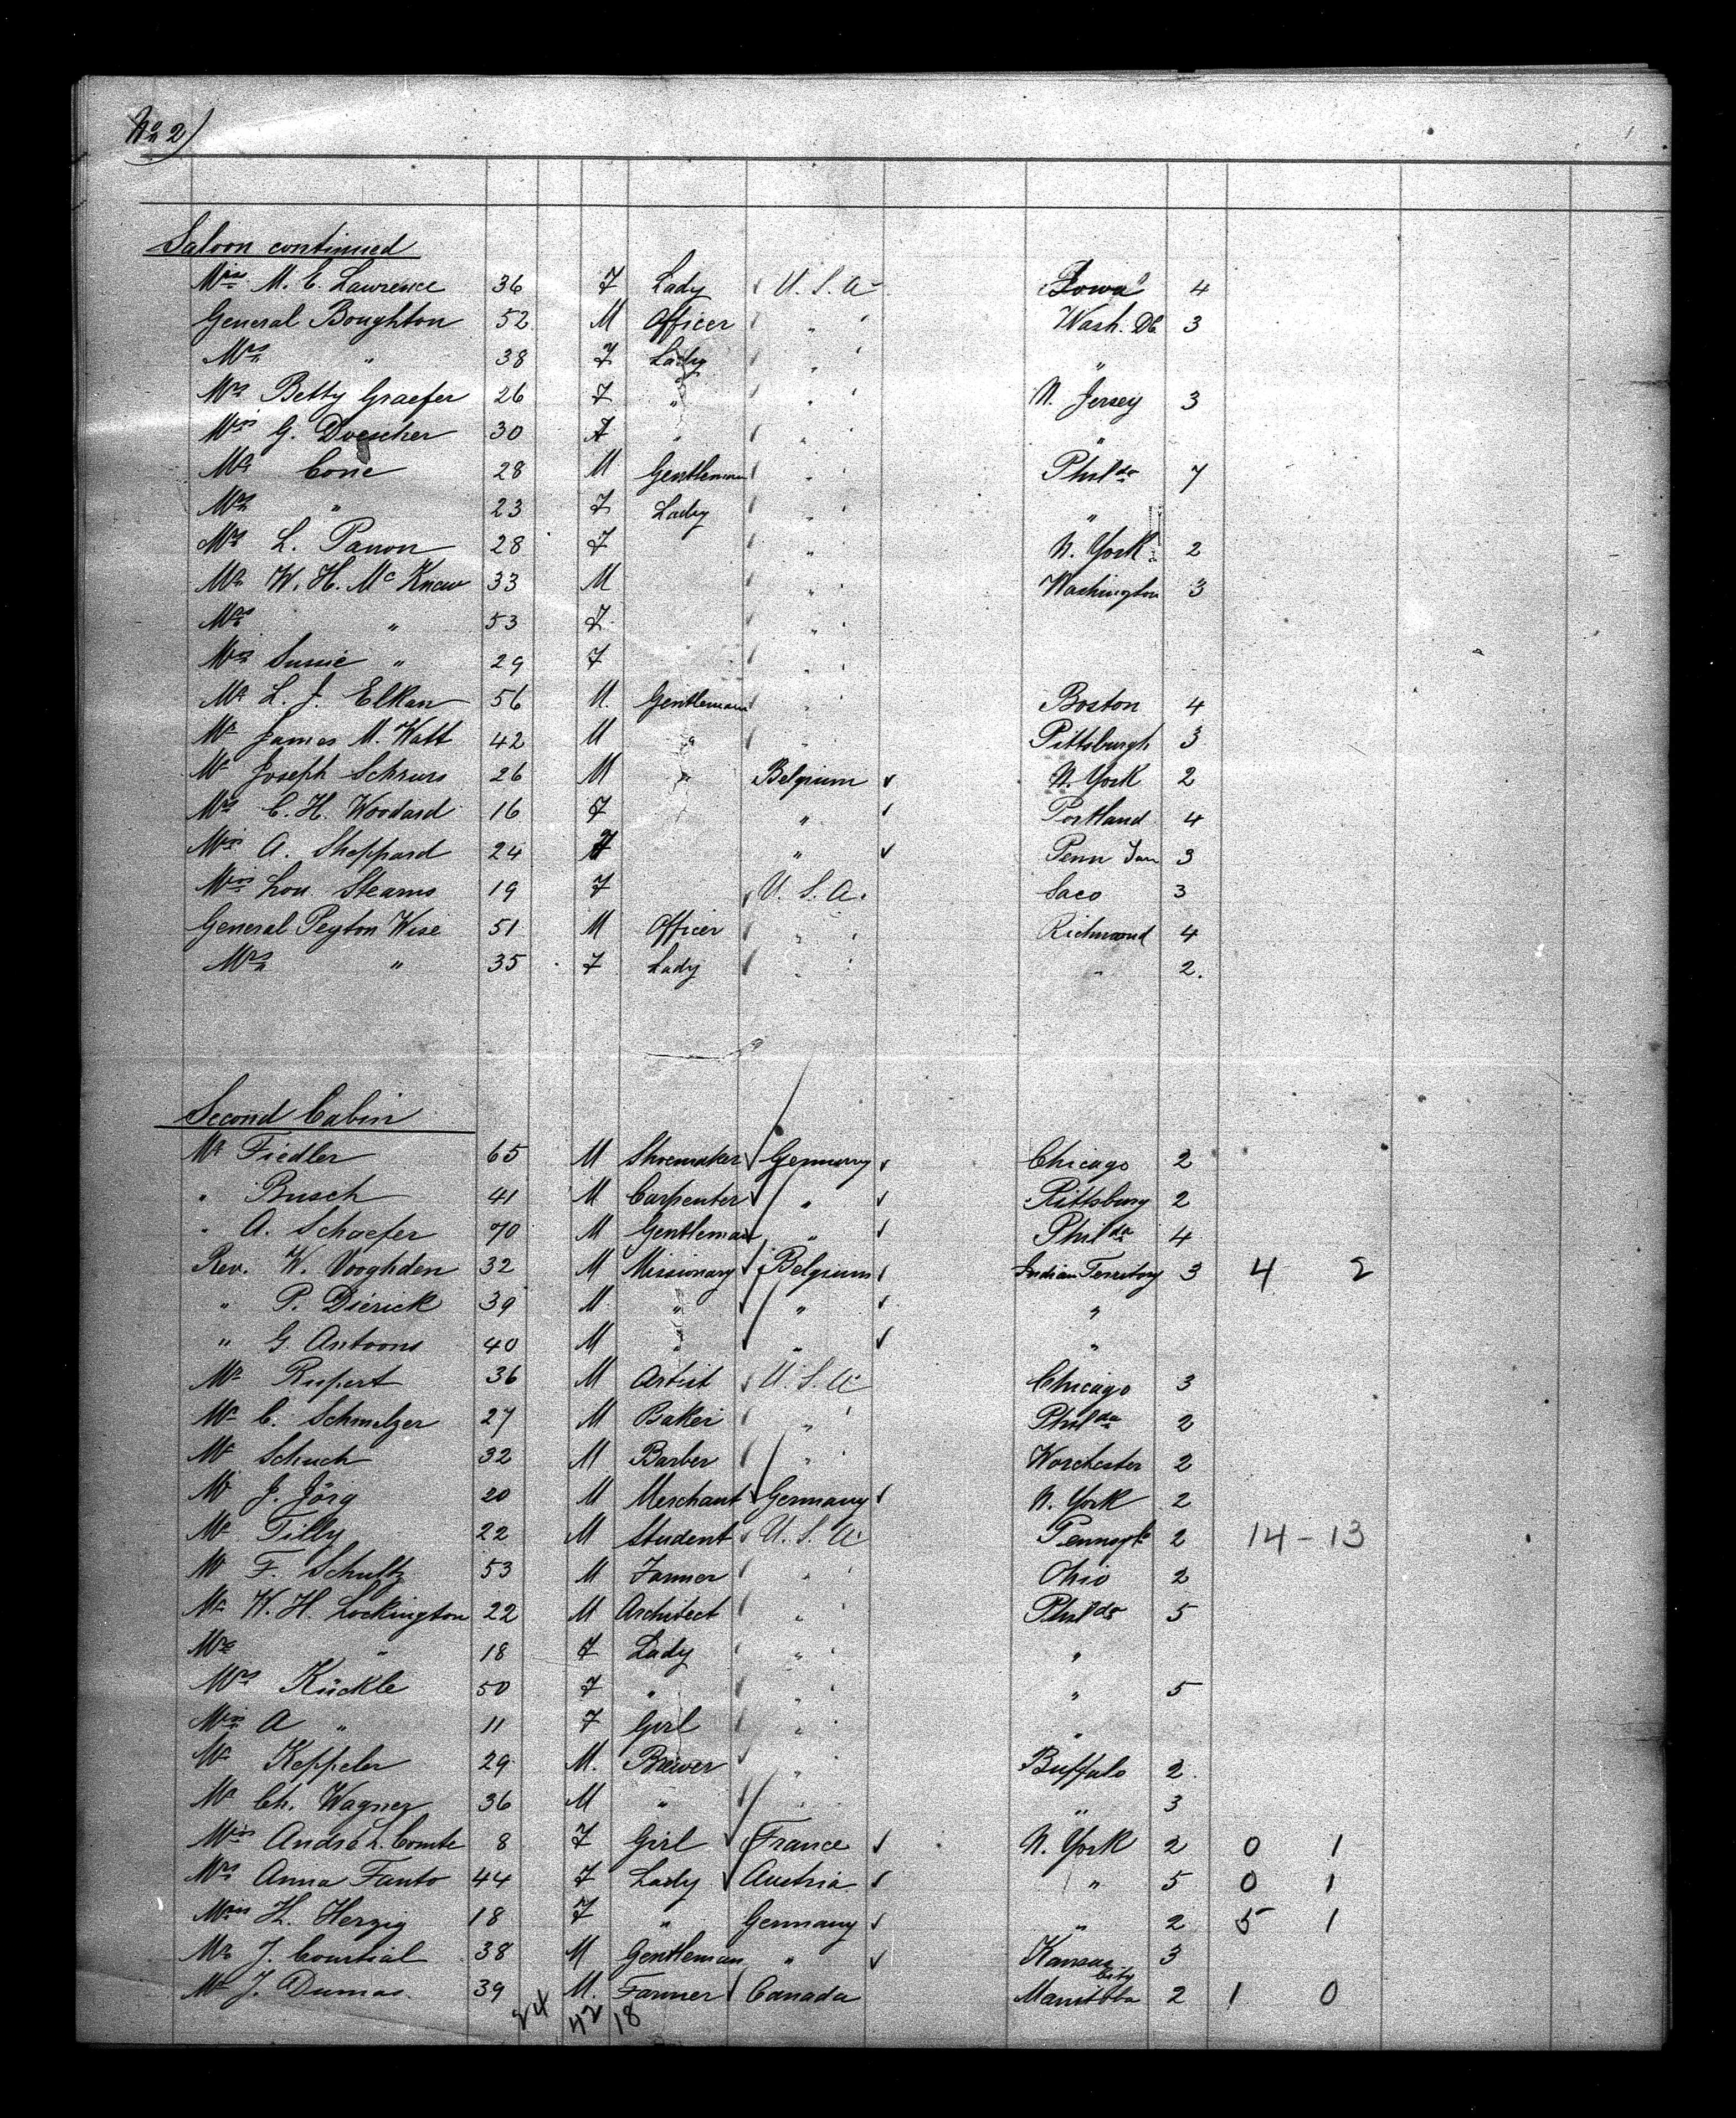 No 2)
Saloon continued
Miss M. E. Lawrence 36 F Lady U. S. A. Iowa 4
General Boughton 52 M Officer " Wash. DC 3
Mrs " 38 F Lady " "
Mrs Betty Graefer 26 F " " N. Jersey 3
Miss G. Doescher 30 F " " "
Mr Cone 28 M Gentleman " Philda 7
Mrs " 23 F Lady " "
Mrs L. Panon 28 F " N. York 2
Mr W. H. Mc Knew 33 M " Washington 3
Mrs " 53 F "
Miss Susie " 29 F "
Mr L. J. Elkan 56 M. Gentleman " Boston 4
Mr James M. Watt 42 M " " Pittsburgh 3
Mr Joseph Schrurs 26 M " Belgium N. York 2
Mrs C. H. Woodard 16 F " Portland 4
Miss A. Sheppard 24 F " Penn 3
Miss Lou Stearns 19 F U. S. A. Saco 3
General Peyton Wise 51 M Officer " Richmond 4
Mrs " 35 F Lady " " 2.
Second Cabin
Mr Fiedler 65 M Shoemaker Germany Chicago 2
" Busch 41 M Carpenter " Pittsburg 2
" A. Schaefer 70 M Gentleman " Philda 4
Rev. W. Vooghden 32 M Missionary Belgium Indian Territory 3 4 2
" P. Dierick 39 M " " "
" G Antoons 40 M " " "
Mr Rupert 36 M Artist U. S. A. Chicago 3
Mr C. Schmelzer 27 M Baker " Philda 2
Mr Schuch 32 M Barber " Worchester 2
Mr J. Jörg 20 M Merchant Germany N. York 2
Mr Tilly 22 M Student U. S. A. 2 14-13
Mr F. Schultz 53 M Farmer " Ohio 2
Mr W. H. Lockington 22 M Architect " Philda 5
Mrs " 18 F Lady " "
Mrs Kückle 50 F " " " 5
Miss A " 11 F Girl " "
Mr Keppeler 29 M. Brewer " Buffalo 2
Mr Ch. Wagner 36 M " " " 3
Miss André L. Comte 8 F Girl France N. York 2 0 1
Mrs Anna Fanto 44 F Lady Austria " 5 0 1
Miss H. Herzig 18 F " Germany " 2 5 1
Mr J. Courtial 38 M Gentleman " Kansas City 3
Mr J. Dumas. 39 M. Farmer Canada Manitoba 2 1 0
24 42 18